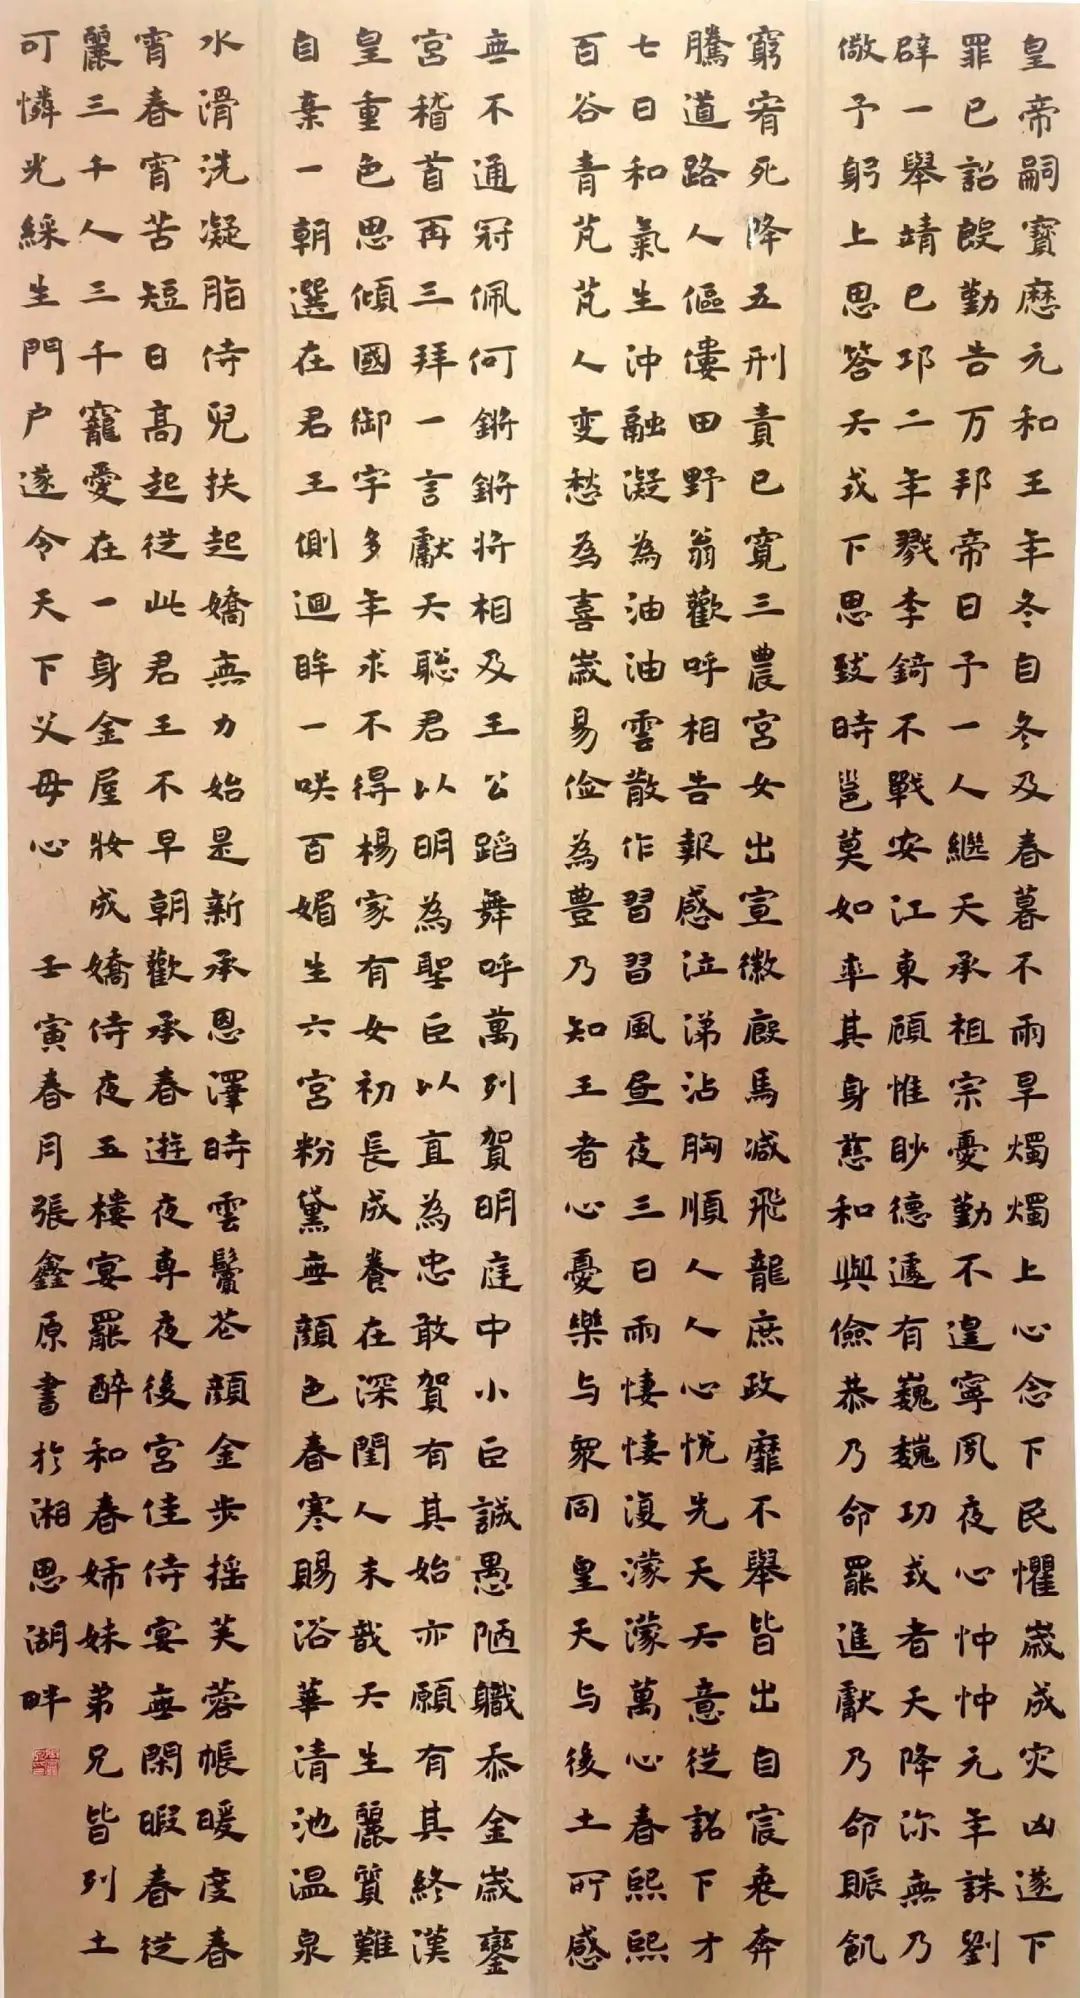 皇帝嗣寶曆元和王年冬自冬及春暮不雨旱爞爞上心念下民懼歲成灾凶遂下
罪已詔殷勤告万邦帝曰予一人繼天承祖宗憂勤不遑寧夙夜心忡忡元年誅劉
辟一舉靖巴邛二年戮李錡不戰安江東顧惟眇德遽有巍巍功或者天降沵無乃
儆予躬上思答天戒下思致時邕莫如率其身慈和與儉恭乃命罷進獻乃命賑飢
窮宥死降五刑責已寛三農宮女出宣徽廄馬减飛龍庶政靡不舉皆出自宸衷奔
騰道路人傴僂田野翁歡呼相告報感泣涕沾胸順人人心悅先天天意從詔下才
七日和氣生沖融凝為油油雲散作習習風昼夜三日雨悽悽復濛濛萬心春熙熙
百谷青芃芃人变愁為喜歲易俭為豊乃知王者心憂樂与衆同皇天与後土所感
無不通冠佩何鏘鏘將相及王公蹈舞呼萬列賀明庭中小臣誠愚陋職忝金歲鑾
宮稽首再三拜一言獻天聡君以明為聖臣以直為忠敢賀有其始亦願有其終漢
皇重色思傾國御宇多年求不得楊家有女初長成養在深閨人未哉天生麗質難
自棄一朝選在君王側迴眸一咲百媚生六宮粉黛無顔色春寒賜浴華清池温泉
水滑洗凝脂侍兒扶起嬌無力始是新承恩澤時雲鬢花顔金步摇芙蓉帳暖度春
宵春宵苦短日高起從此君王不早朝歡承春遊夜專夜後宮佳侍宴無閑暇春從
麗三千人三千寵愛在一身金屋妝成嬌侍夜五樓宴罷醉和春姊妹弟兄皆列土
可憐光綵生門户遂令天下父母心 壬寅春月張鑫原書於湘思湖畔